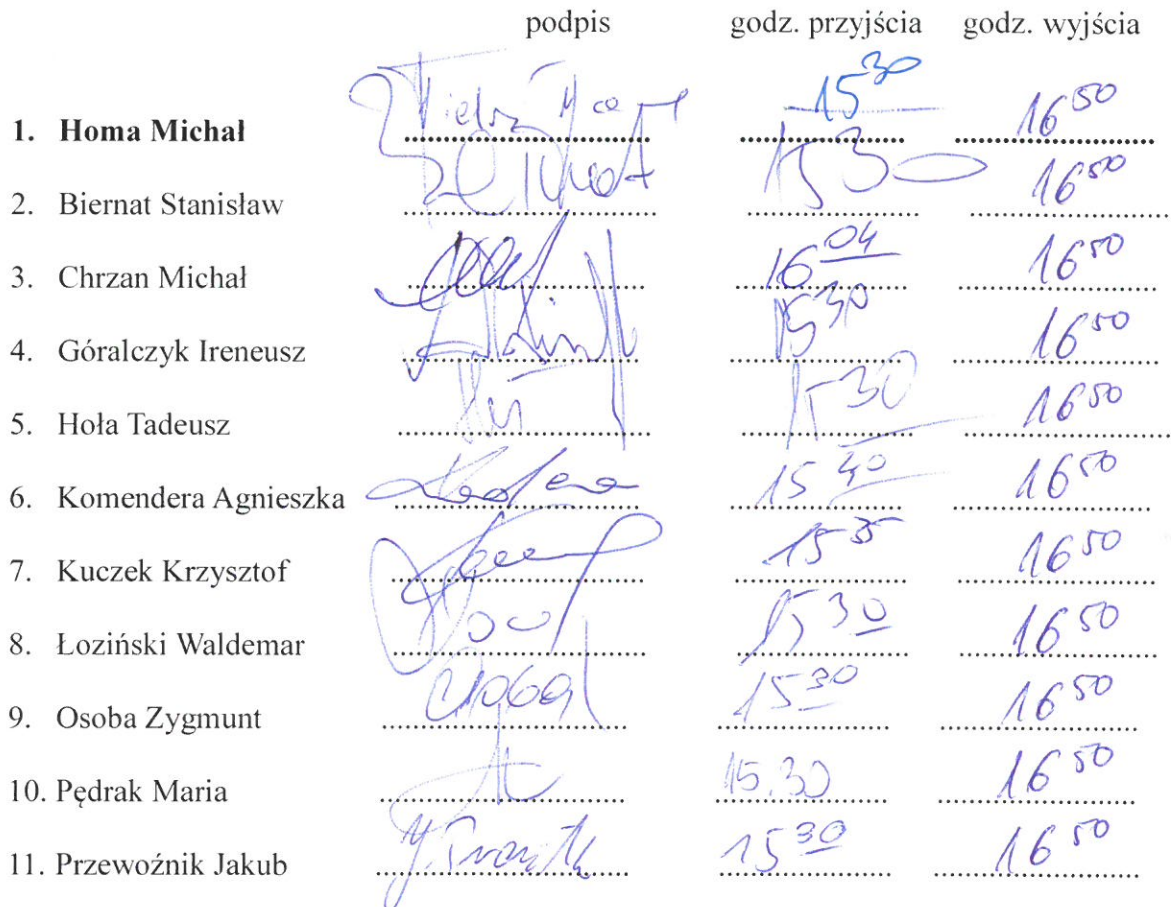 podpis godz. przyjścia godz. wyjścia
1. Homa Michał 15 30 16 50
2. Biernat Stanisław 15 30 16 50
3. Chrzan Michał 16 04 16 50
4. Góralczyk Ireneusz 15 30 16 50
5. Hoła Tadeusz 15 30 16 50
6. Komendera Agnieszka 15 40 16 50
7. Kuczek Krzysztof 15 35 16 50
8. Łoziński Waldemar 15 30 16 50
9. Osoba Zygmunt 15 30 16 50
10. Pędrak Maria 15.30 16 50
11. Przewoźnik Jakub 15 30 16 50